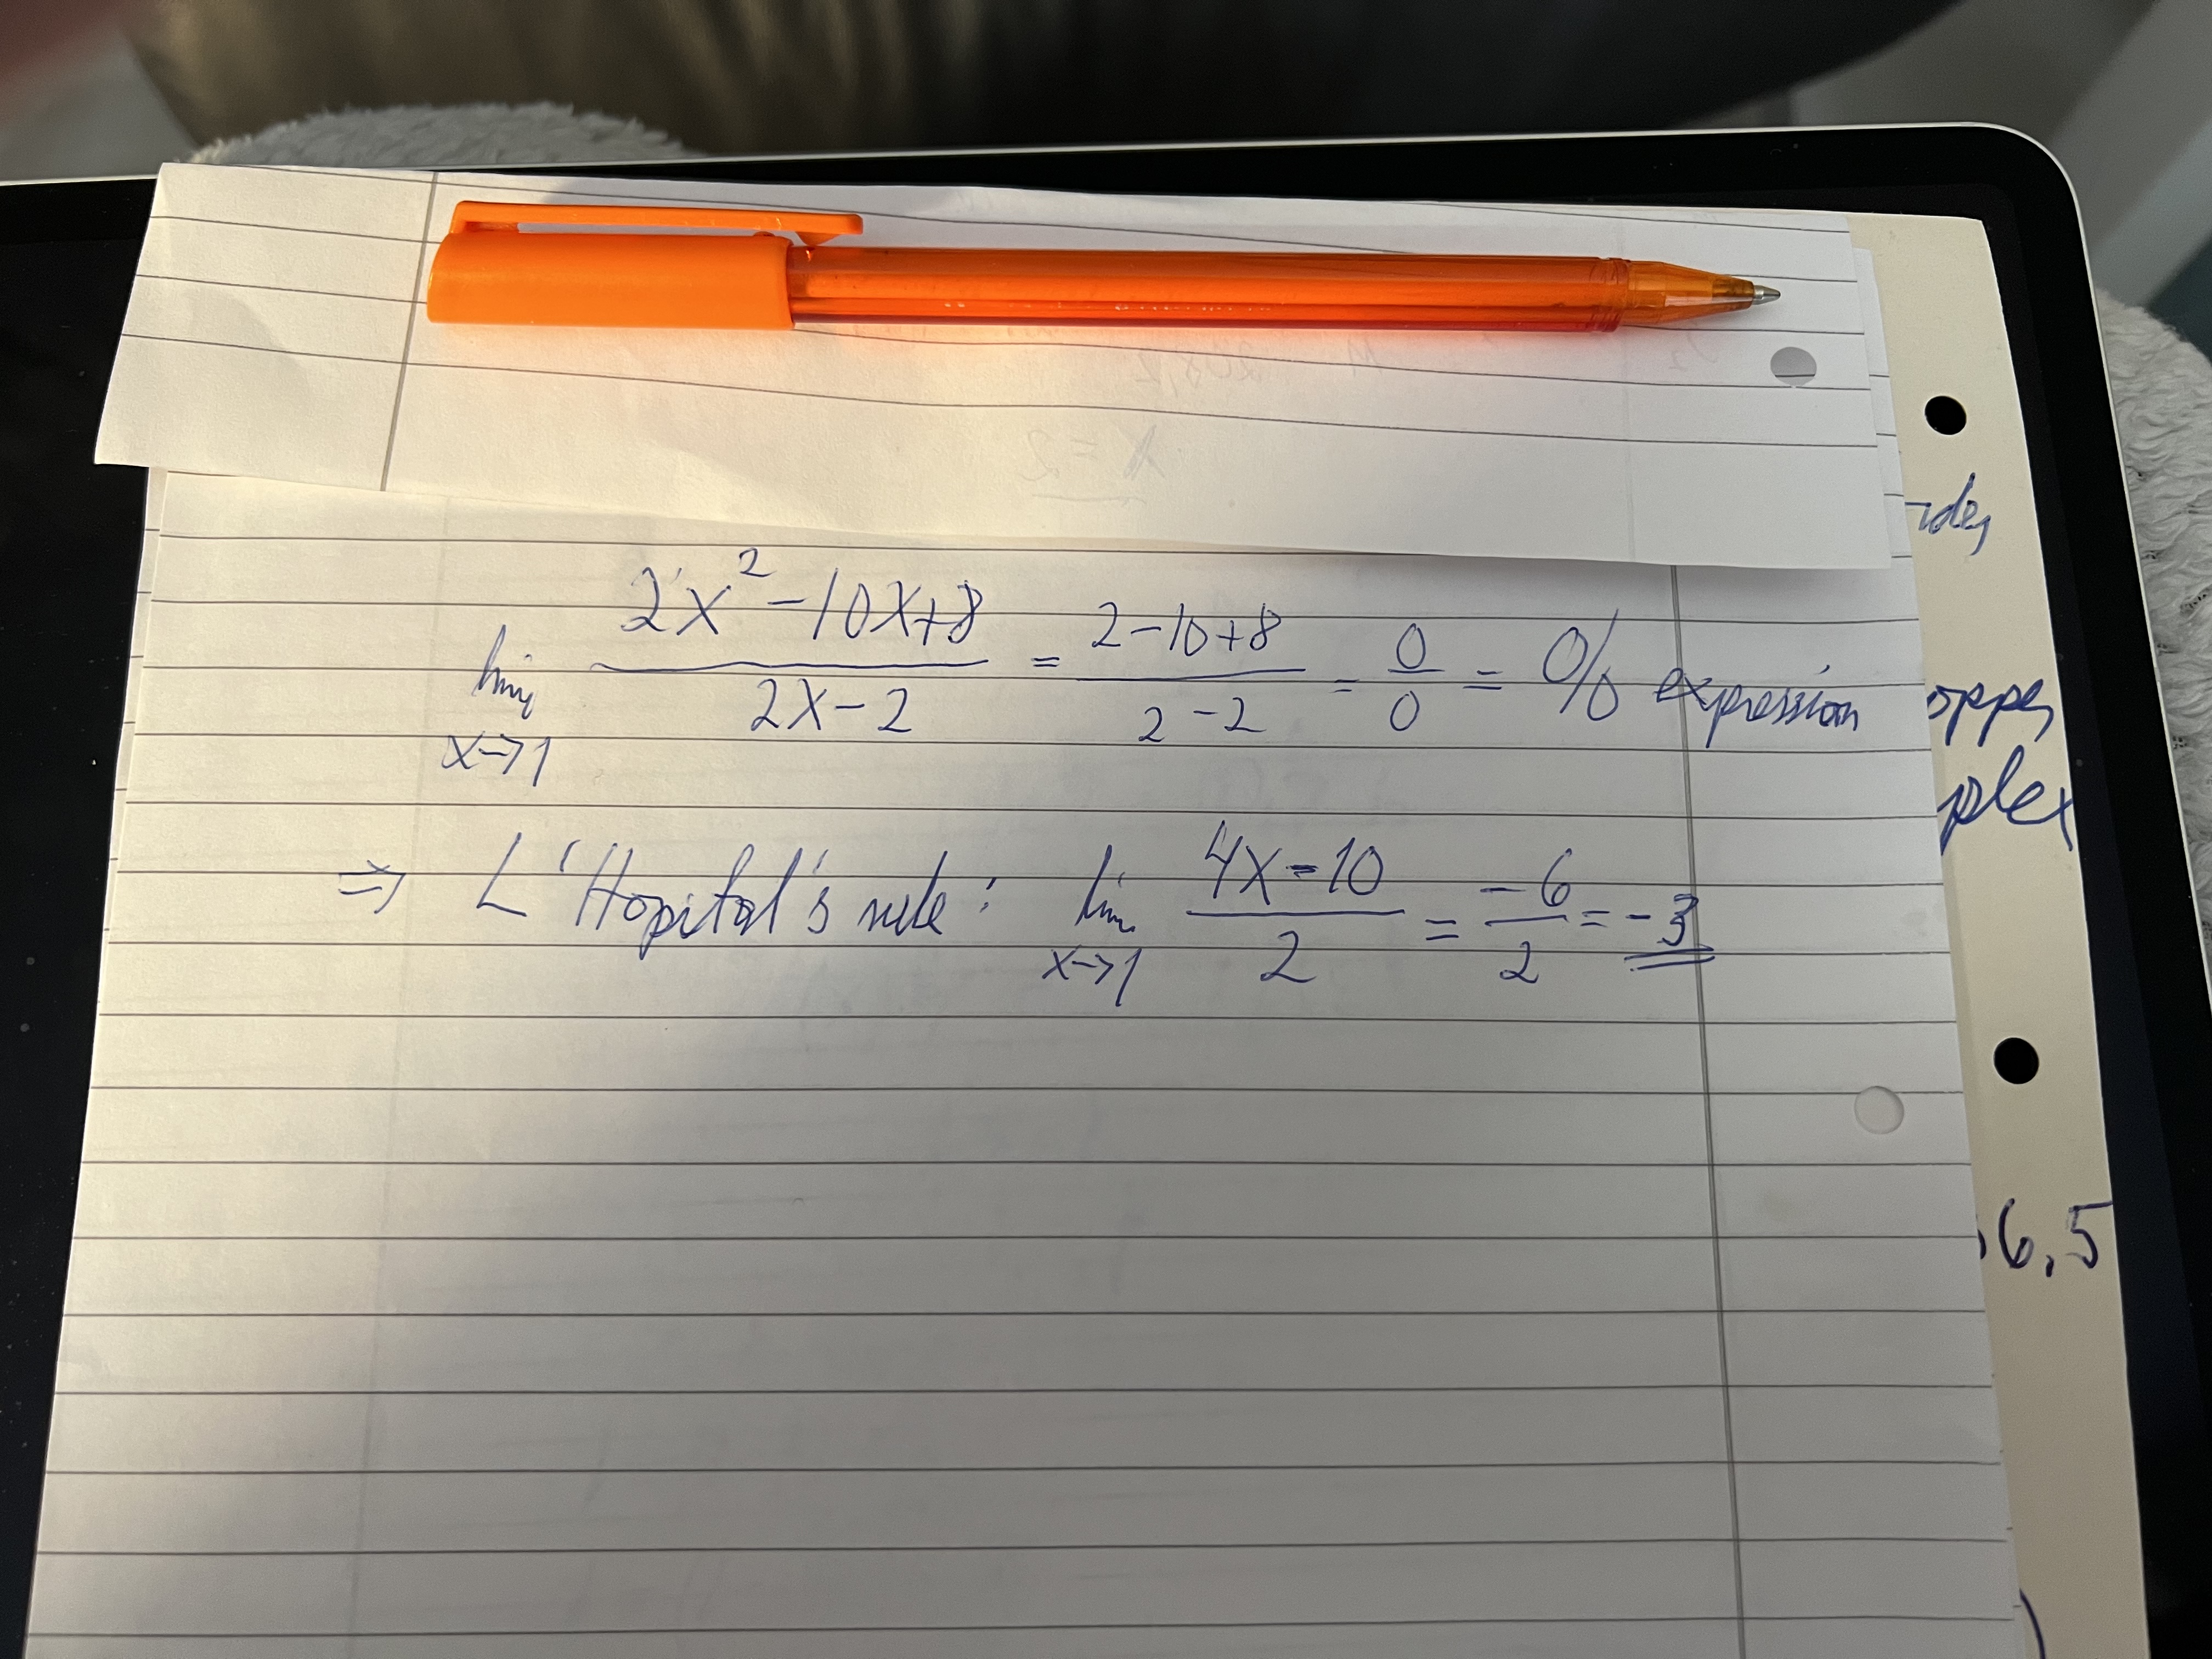 x = 2
lim x→1 (2x² - 10x + 8)/(2x - 2) = (2 - 10 + 8)/(2 - 2) = 0/0 = 0/0 expression
⇒ L'Hopital's rule: lim x→1 (4x - 10)/2 = -6/2 = -3
plex
6,5